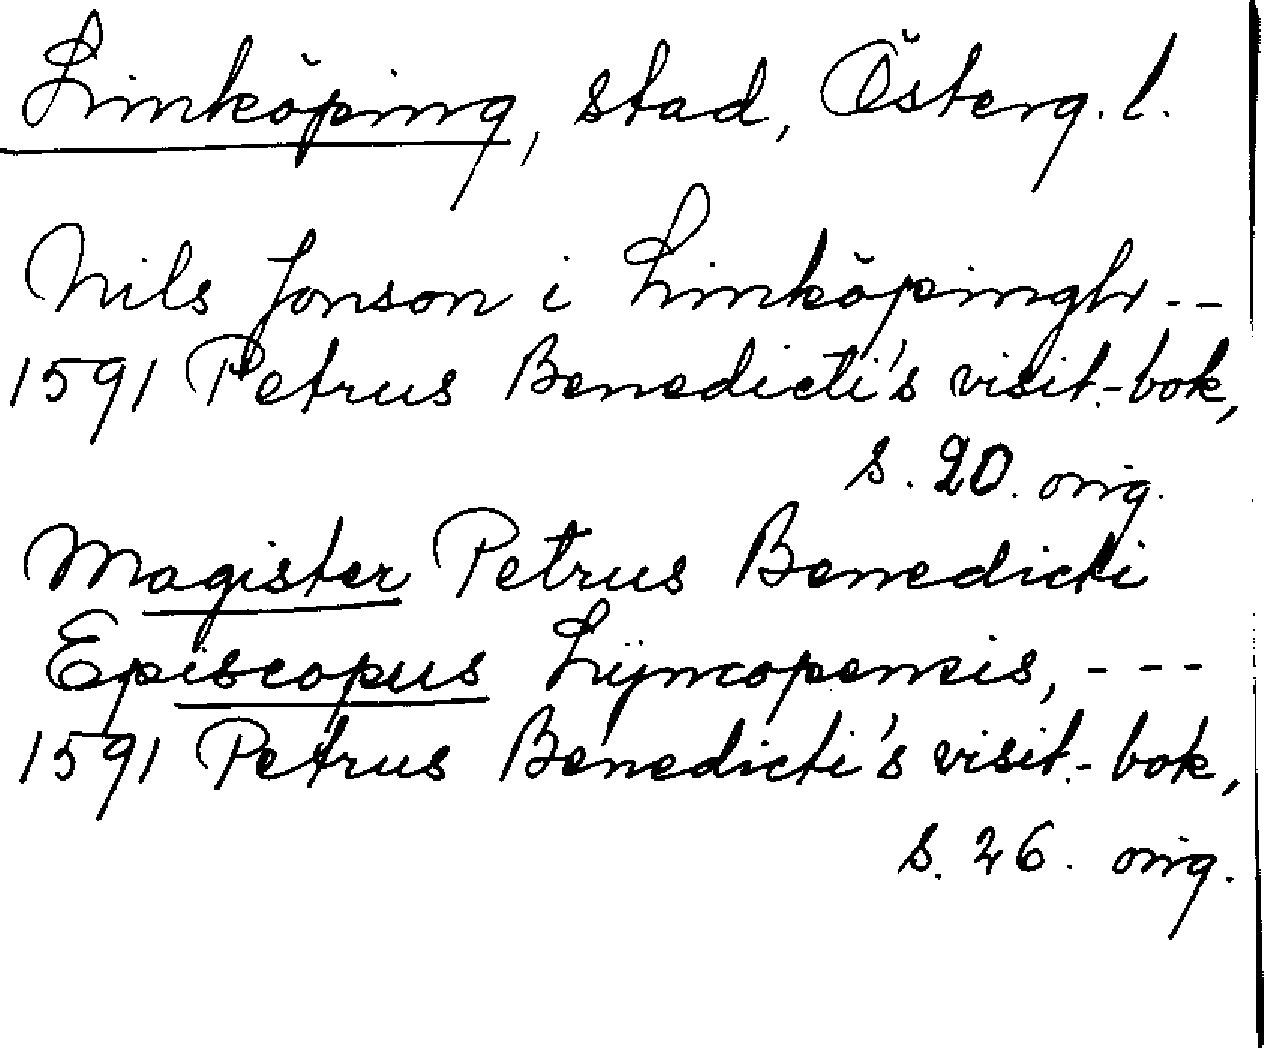 Linköping, stad, Österg. l.
Nils Jonson i Linköpingh --
1591 Petrus Benedicti's visit.-bok,
s. 20. orig.
Magister Petrus Benedicti
Episcopus Lÿncopensis, ---
1591 Petrus Benedicti's visit.-bok,
s. 26. orig.